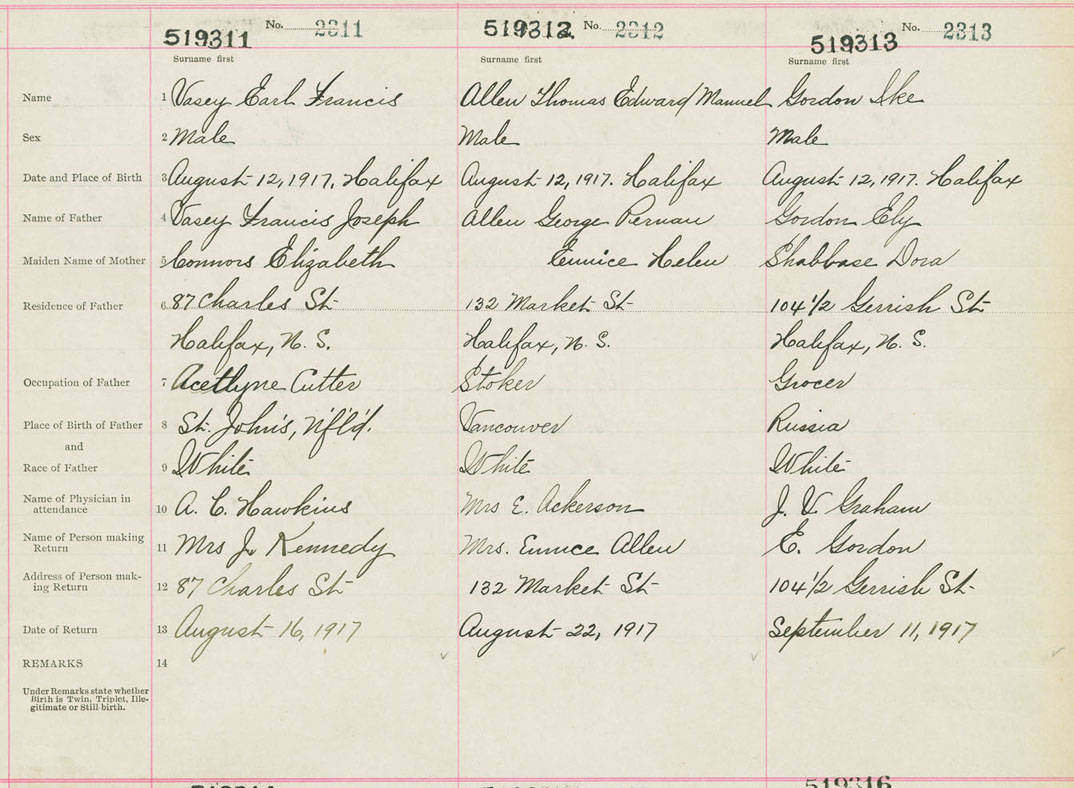 No. 2311 No. 2312 No. 2313
519311 519312 519313
Surname first Surname first Surname first
Name 1 Vasey Earl Francis Allen Thomas Edward Manuel Gordon Ike
Sex 2 Male Male Male
Date and Place of Birth 3 August 12, 1917. Halifax August 12, 1917. Halifax August 12, 1917. Halifax
Name of Father 4 Vasey Francis Joseph Allen George Gordon Ely
Maiden Name of Mother 5 Connors Elizabeth Eunice Helen Shabbase Dora
Residence of Father 6 87 Charles St 132 Market St 104 1/2 Gerrish St
Halifax, N. S. Halifax, N. S. Halifax, N. S.
Occupation of Father 7 Acetlyne Cutter Stoker Grocer
Place of Birth of Father 8 St. John's, Nfl'd. Vancouver Russia
and
Race of Father 9 White White White
Name of Physician in
attendance 10 A. C. Hawkins Mrs E. Ackerson J. V. Graham
Name of Person making
Return 11 Mrs J. Kennedy Mrs. Eunice Allen E. Gordon
Address of Person mak-
ing Return 12 87 Charles St 132 Market St 104 1/2 Gerrish St.
Date of Return 13 August 16, 1917 August 22, 1917 September 11, 1917
REMARKS 14
Under Remarks state whether
Birth is Twin, Triplet, Ille-
gitimate or Still-birth.
519316